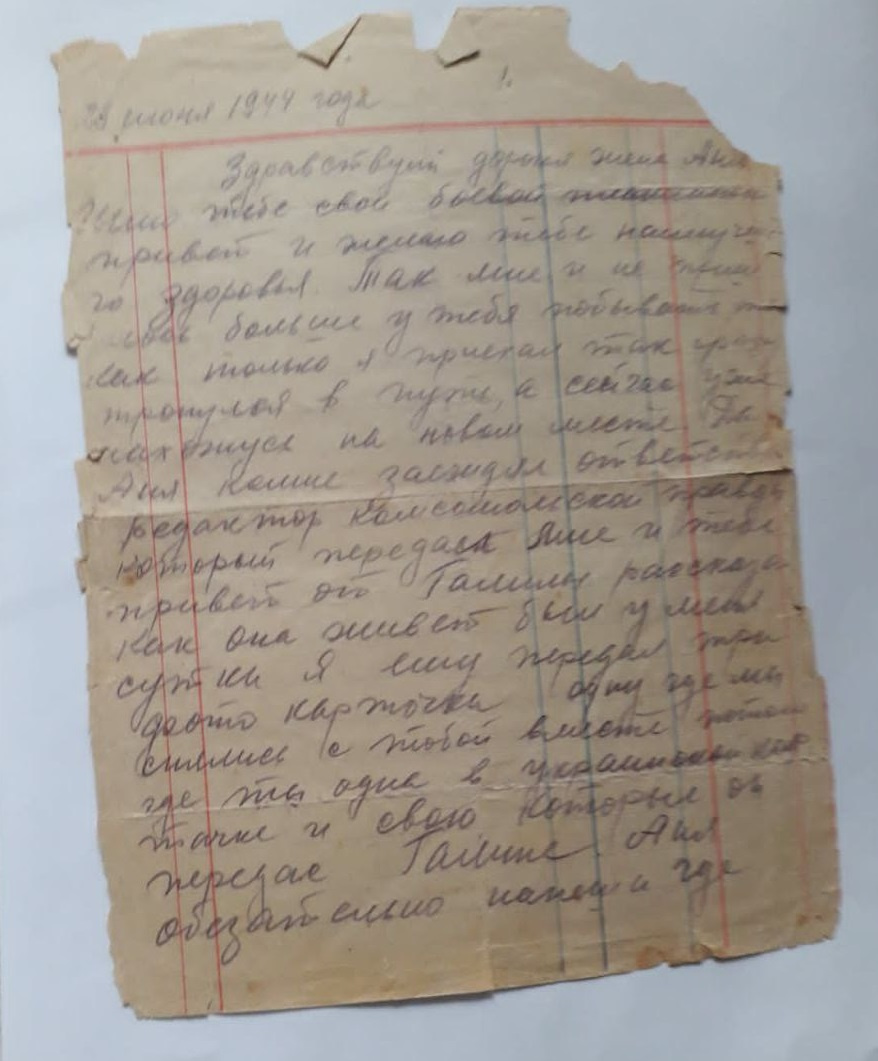 28 июня 1944 года 1.
Здравствуй дорогая жена Аня
Шлю тебе свой боевой
привет и желаю тебе наилучше-
го здоровья. Так мне и не приш
лось больше у тебя побывать т
как только я приехал так сразу
тронулся в путь, а сейчас уже
нахожусь на новом месте. Да
Аня ко мне заезжал ответств
редактор комсомольской правды
который передал мне и тебе
привет от Галины рассказал
как она живет был у меня
сутки Я ему передал три
фото карточки одну где мы
снялись с тобой вместе потом
где ты одна в украинской коф
точке и свою которые он
передас Галине. Аня
обезательно напиши где